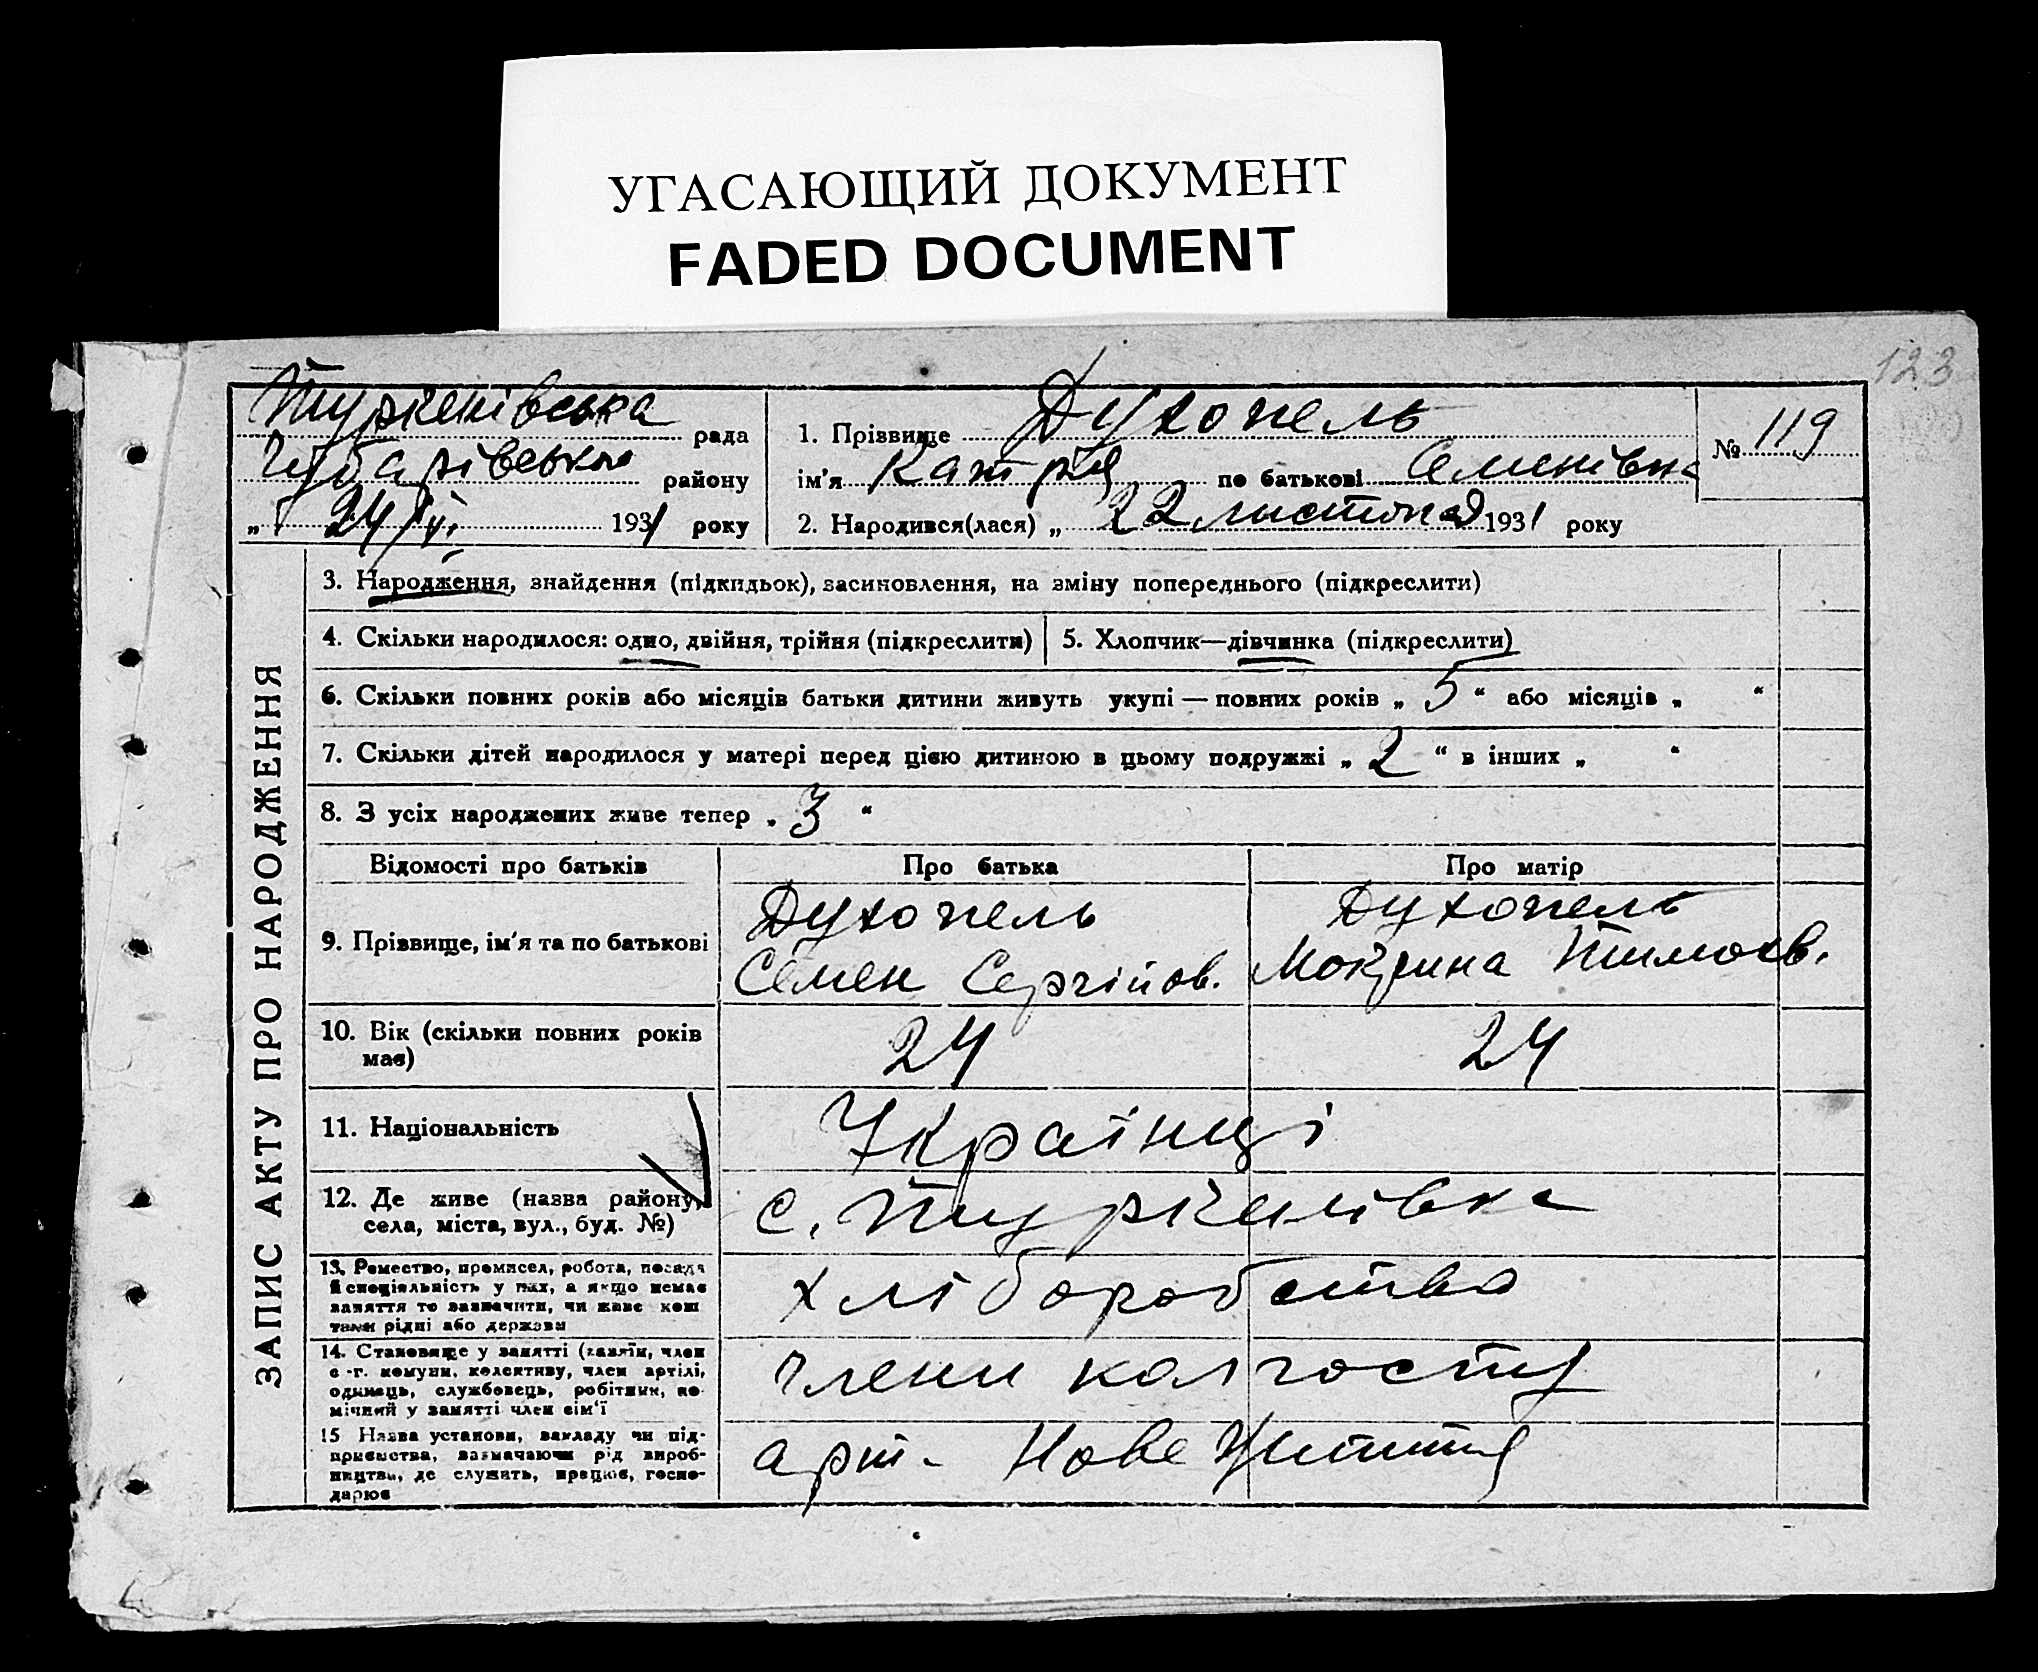 УГАСАЮЩИЙ ДОКУМЕНТ
FADED DOCUMENT
123
Туркенівська рада
Чубарівського району
„ 24/XI. 1931 року
1. Прізвище Духопель
ім'я Катря по батькові Семенівна
2. Народився(лася) „ 22 листопад 1931 року
№ 119
ЗАПИС АКТУ ПРО НАРОДЖЕННЯ
3. Народження, знайдення (підкидьок), засиновлення, на зміну попереднього (підкреслити)
4. Скільки народилося: одно, двійня, трійня (підкреслити)
5. Хлопчик—дівчинка (підкреслити)
6. Скільки повних років або місяців батьки дитини живуть укупі — повних років „ 5 “ або місяців „ “
7. Скільки дітей народилося у матері перед цією дитиною в цьому подружжі „ 2 “ в інших „ “
8. З усіх народжених живе тепер „ 3 “
Відомості про батьків
Про батька
Про матір
9. Прізвище, ім'я та по батькові
Духопель
Семен Сергійов.
Духопель
Мокрина Тимохв.
10. Вік (скільки повних років
має)
24
24
11. Національність
Українці
12. Де живе (назва району,
села, міста, вул., буд. №)
с. Туркенівка
13. Ремество, промисел, робота, посада
й спеціяльність у них, а якщо немає
заняття то зазначити, чи живе кош
тами рідні або держави
хліборобство
14. Становище у занятті (хазяїн, член
с.-г. комуни, колективу, член артілі,
одинець, службовець, робітник, по-
мічний у занятті член сім'ї
члени колгоспу
15 Назва установи, закладу чи під-
приємства, зазначаючи рід вироб-
ництва, де служить, працює, госпо-
дарює
арт. Нове Життя